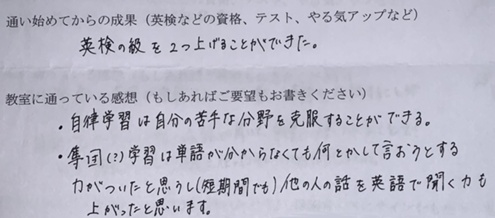 通い始めてからの成果（英検などの資格、テスト、やる気アップなど）
英検の級を2つ上げることができた。
教室に通っている感想（もしあればご要望もお書きください）
・自律学習は自分の苦手な分野を克服することができる。
・隼団(?)学習は単語が分からなくても何とかして言おうとする
力がついたと思うし(短期間でも)他の人の話を英語で聞く力も
上がったと思います。